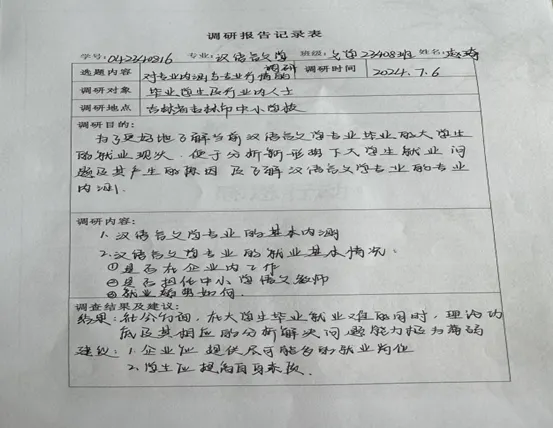 调研报告记录表
学号:042340816 专业:汉语言文学 班级:文学23408班 姓名:
选题内容 对专业内涵与专业行情的调研 调研时间 2024.7.6
调研对象 毕业学生及行业内人士
调研地点 吉林省吉林市中小学校
调研目的:
为了更好地了解当前汉语言文学专业毕业的大学生
的就业现状,便于分析新形势下大学生就业问
题及其产生的原因及了解汉语言文学专业的专业
内涵.
调研内容:
1.汉语言文学专业的基本内涵
2.汉语言文学专业的就业基本情况.
①是否在企业内工作
②是否担任中小学语文教师
③就业前景如何.
调查结果及建议:
结果:社会方面,在大学生毕业就业难的同时,理论功
底及其相应的分析解决问题能力极为薄弱
建议:1.企业应提供尽可能多的就业岗位
2.学生应提高自身素质.